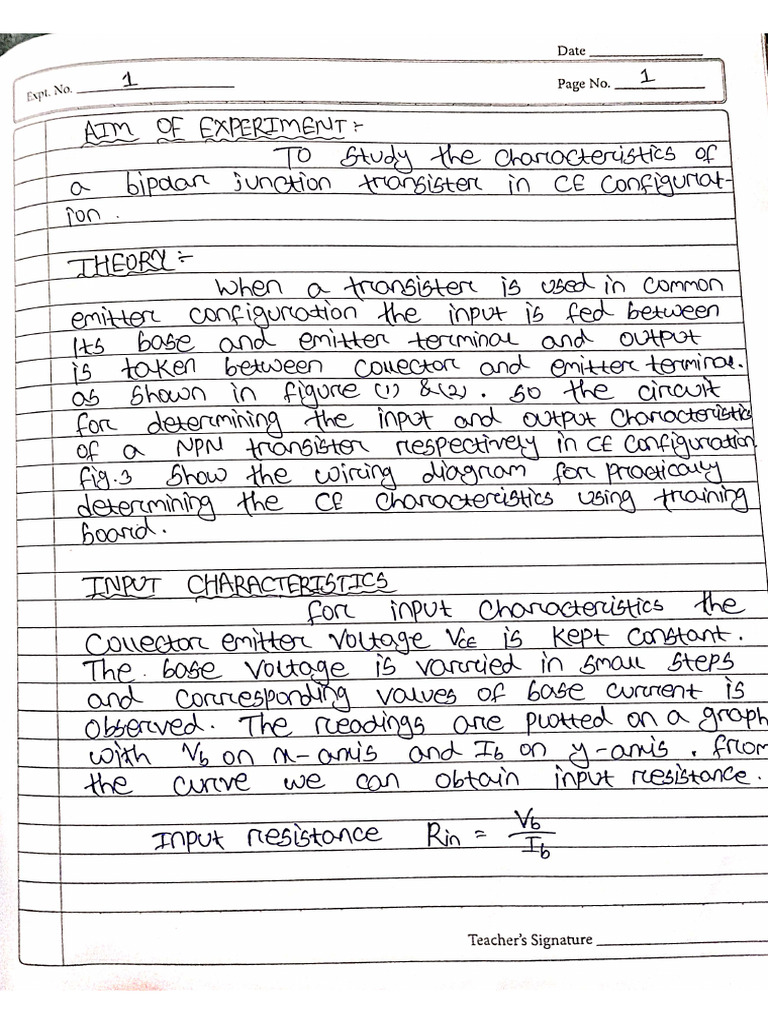 Date
Expt. No. 1
Page No. 1
AIM OF EXPERIMENT:-
To Study the characteristics of
a bipolar junction transister in CE Configurat-
ion.
THEORY:-
When a transister is used in common
emitter configuration the input is fed between
Its base and emitter terminal and output
is taken between collector and emitter terminal.
as shown in figure (1) & (2). so the circuit
for determining the input and output Characteristic
of a NPN transister respectively in CE Configuration
fig.3 Show the wiring diagram for practically
determining the CE Characteristics using training
board.
INPUT CHARACTERISTICS
for input Characteristics the
Collector emitter Voltage VCE is kept Constant.
The base Voltage is varried in small steps
and corresponding values of base current is
observed. The readings are plotted on a graph
with Vb on x-axis and Ib on y-axis. from
the curve we can obtain input resistance.
Input resistance Rin = Vb / Ib
Teacher's Signature